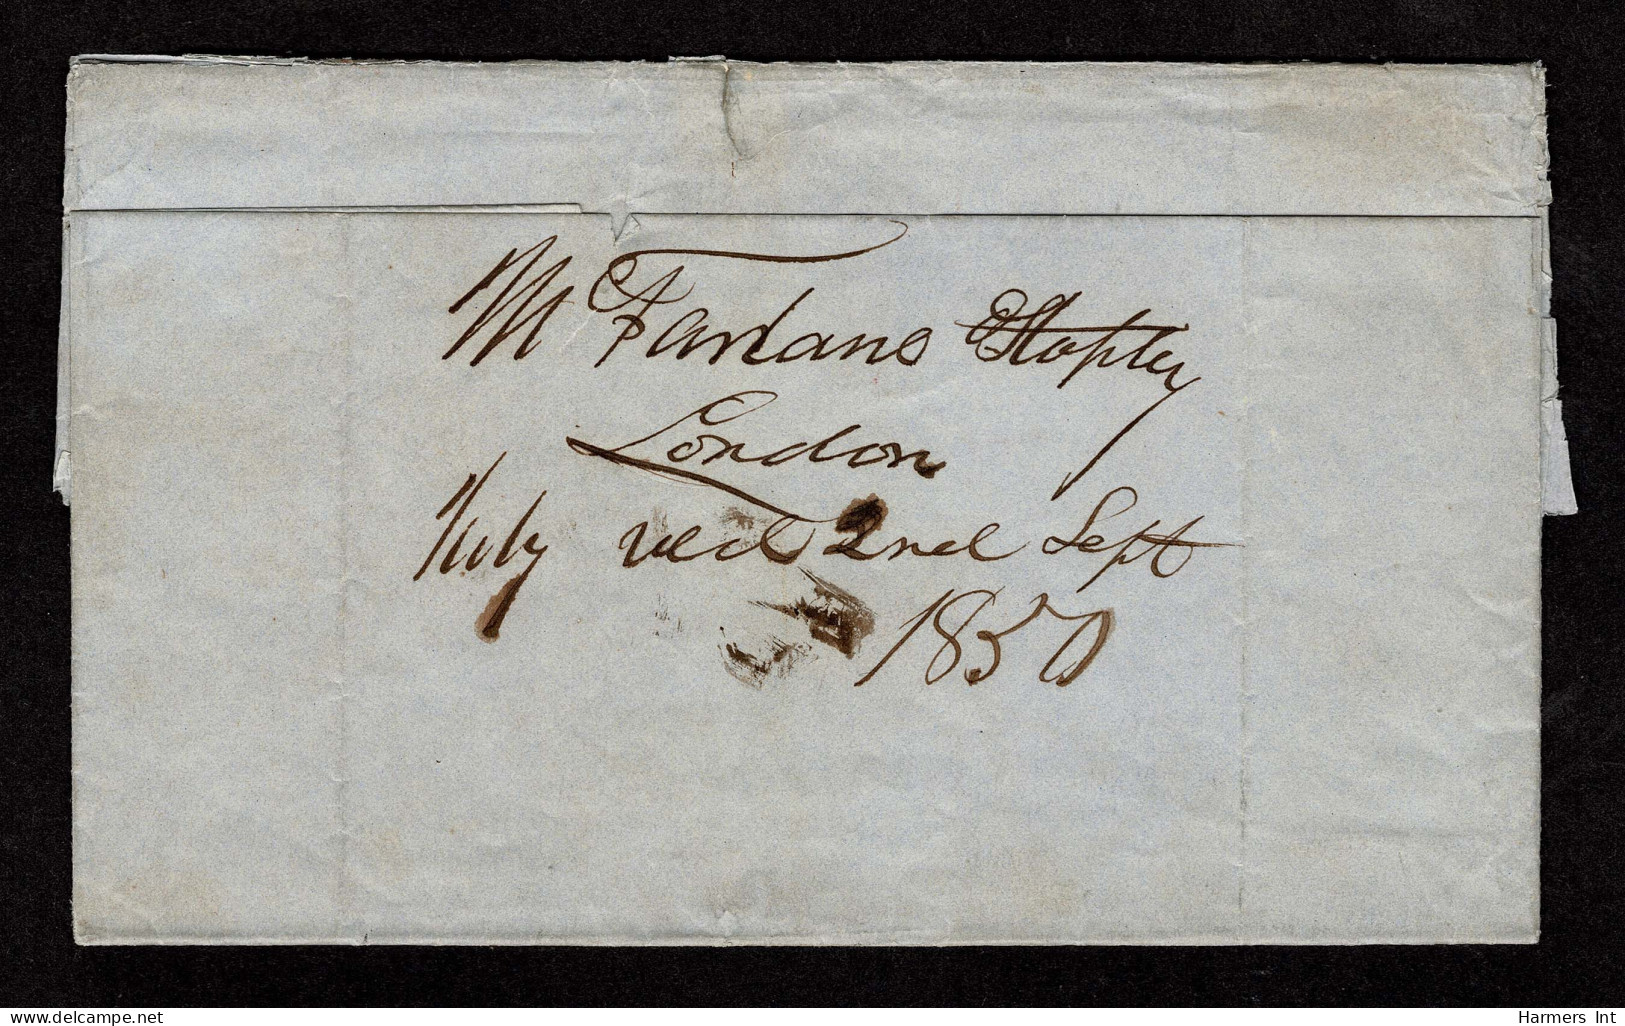 McFarlane Stapley
London
recd 2nd Sept
1850
www.delcampe.net
Harmers Int